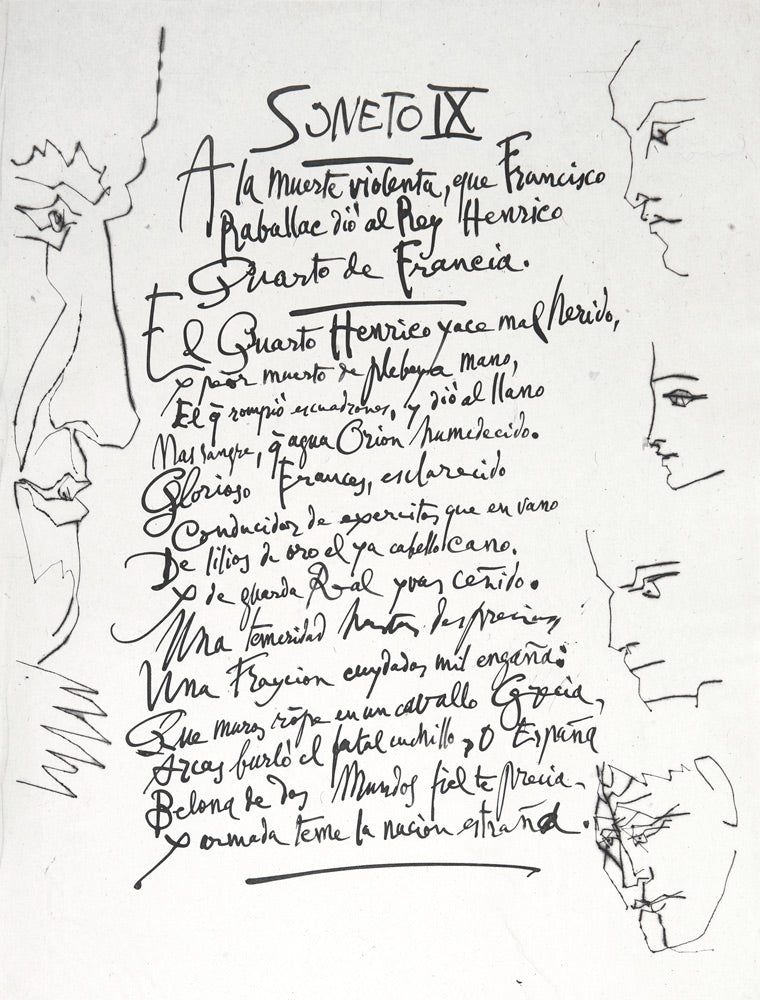 SONETO IX
A la muerte violenta, que Francisco
Raballac dió al Rey Henrico
Quarto de Francia.
El Quarto Henrico yace mal herido,
y peor muerto de plebeya mano,
El q̄ rompió escuadrones, y dió al llano
Mas sangre, q̄ agua Orion humedecido.
Glorioso Frances, esclarecido
Conducidor de exercitos que en vano
De lilios de oro el ya cabello cano.
y de guarda Real yvas ceñido.
Una temeridad hastas desprecia,
Una Traycion cuydados mil engaña:
Que muros rōpe en un caballo Grecia,
Arcas burló el fatal cuchillo, O España
Belona de dos Mundos fiel te precia.
y armada teme la nación estraña.